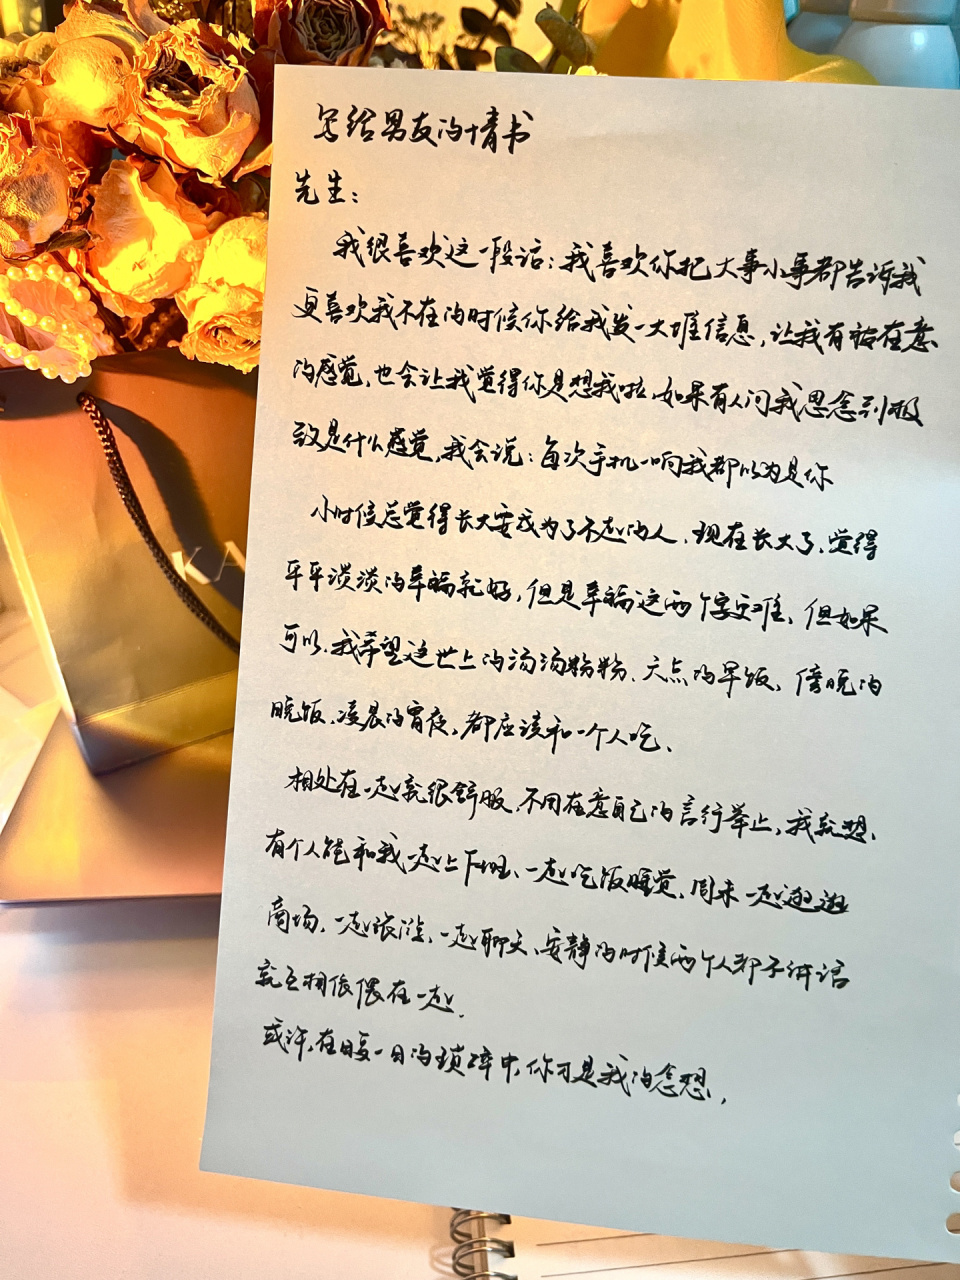 写给男友的情书
先生：
我很喜欢这一段话：我喜欢你把大事小事都告诉我
更喜欢我不在的时候你给我发一大堆信息，让我有被在意
的感觉，也会让我觉得你是想我啦.如果有人问我思念到极
致是什么感觉，我会说：每次手机一响我都以为是你
小时候总觉得长大要成为了不起的人、现在长大了、觉得
平平淡淡的幸福就好，但是幸福这两个字更难、但如果
可以、我希望这世上的汤汤粉粉、六点的早饭、傍晚的
晚饭、凌晨的宵夜，都应该和一个人吃、
相处在一起就很舒服、不用在意自己的言行举止，我就想、
有个人能和我一起上下班、一起吃饭睡觉、周末一起逛逛
商场，一起旅游、一起聊天、安静的时候两个人都不讲话
就互相依偎在一起.
或许，在日复一日的琐碎中，你才是我的念想，
KA